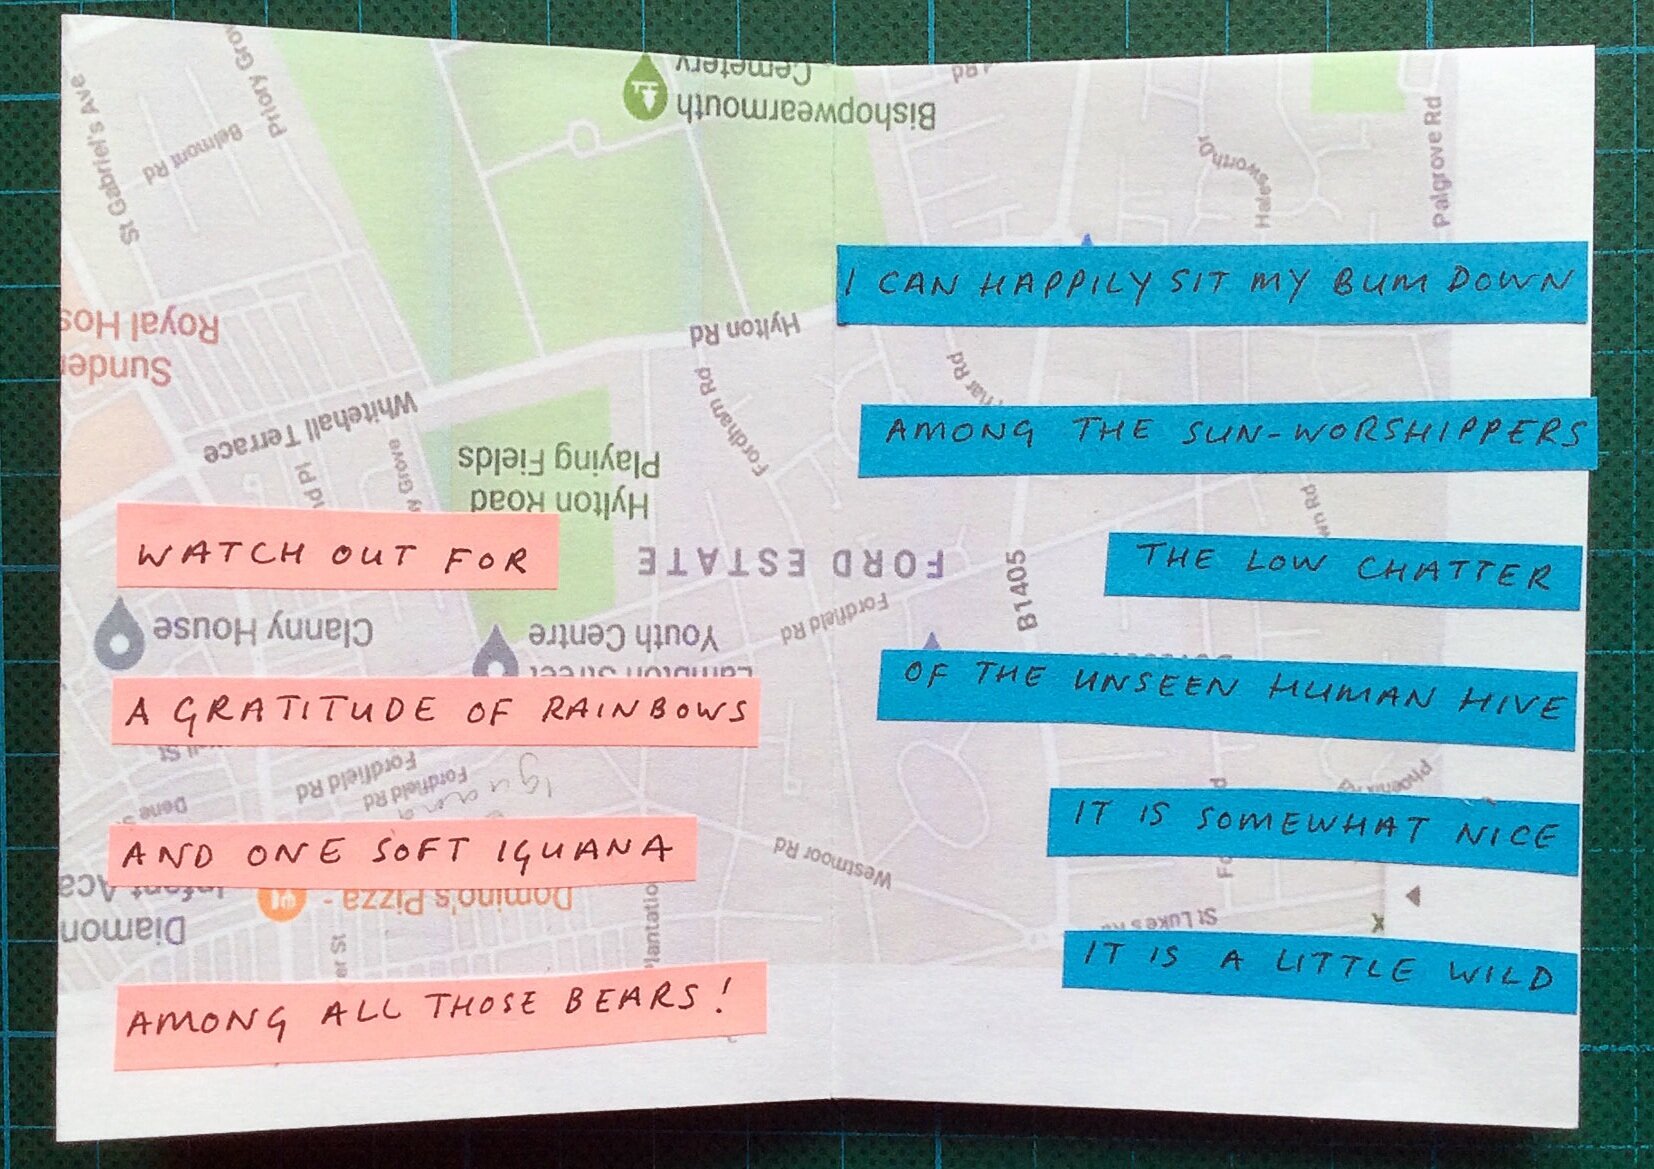 WATCH OUT FOR
A GRATITUDE OF RAINBOWS
AND ONE SOFT IGUANA
AMONG ALL THOSE BEARS!
I CAN HAPPILY SIT MY BUM DOWN
AMONG THE SUN-WORSHIPPERS
THE LOW CHATTER
OF THE UNSEEN HUMAN HIVE
IT IS SOMEWHAT NICE
IT IS A LITTLE WILD
Bishopwearmouth
Cemetery
St Gabriel's Ave
Belmont Rd
Priory Gro
Halesworth Dr
Palgrove Rd
Rd
Sunder
Royal Hos
Whitehall Terrace
Hylton Rd
Fordham Rd
Hylton Road
Playing Fields
FORD ESTATE
B1405
Fordfield Rd
Clanny House
Lambton Street
Youth Centre
Fordfield Rd
Fordfield Rd
Westmoor Rd
Phoenix
St Luke's Rd
Domino's Pizza -
Diamon
Infant Aca
lantatio